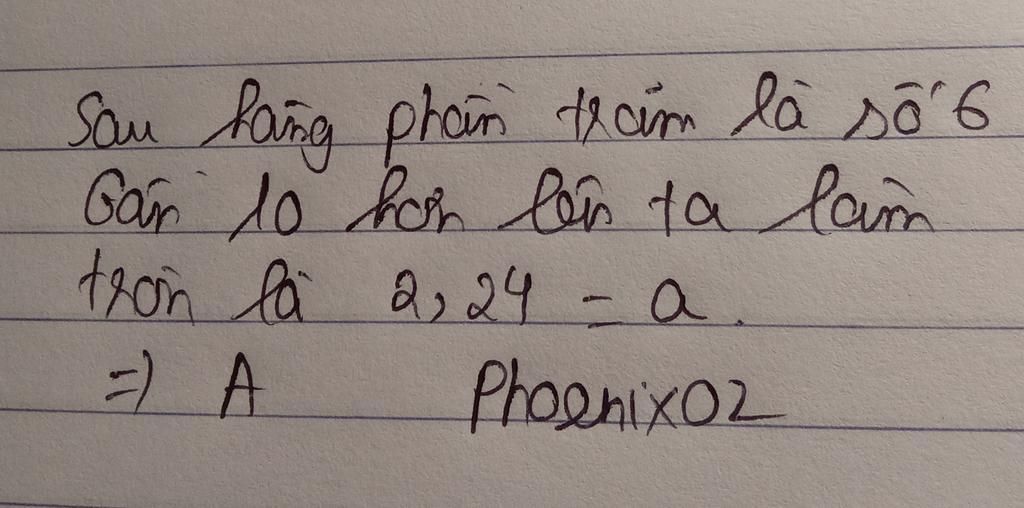 Sau hàng phần trăm là số 6
Gần 10 hơn lên ta làm
tròn là 2,24 = a.
=) A Phoenix02